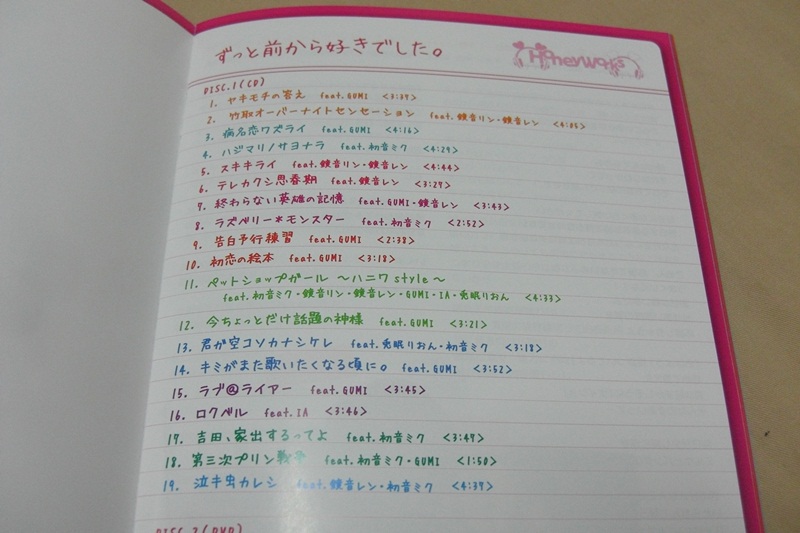 ずっと前から好きでした。
HoneyWorks
DISC.1(CD)
1. ヤキモチの答え feat.GUMI <3:37>
2. 竹取オーバーナイトセンセーション feat.鏡音リン・鏡音レン <4:05>
3. 病名恋ワズライ feat.GUMI <4:16>
4. ハジマリノサヨナラ feat.初音ミク <4:29>
5. スキキライ feat.鏡音リン・鏡音レン <4:44>
6. テレカクシ思春期 feat.鏡音レン <3:27>
7. 終わらない英雄の記憶 feat.GUMI・鏡音レン <3:43>
8. ラズベリー*モンスター feat.初音ミク <2:52>
9. 告白予行練習 feat.GUMI <2:38>
10. 初恋の絵本 feat.GUMI <3:18>
11. ペットショップガール ～ハニワstyle～
feat.初音ミク・鏡音リン・鏡音レン・GUMI・IA・兎眠りおん <4:33>
12. 今ちょっとだけ話題の神様 feat.GUMI <3:21>
13. 君が空コソカナシケレ feat.兎眠りおん・初音ミク <3:18>
14. キミがまた歌いたくなる頃に。 feat.GUMI <3:52>
15. ラブ@ライアー feat.GUMI <3:45>
16. ロクベル feat.IA <3:46>
17. 吉田、家出するってよ feat.初音ミク <3:47>
18. 第三次プリン戦争 feat.初音ミク・GUMI <1:50>
19. 泣キ虫カレシ feat.鏡音レン・初音ミク <4:37>
DISC.2(DVD)